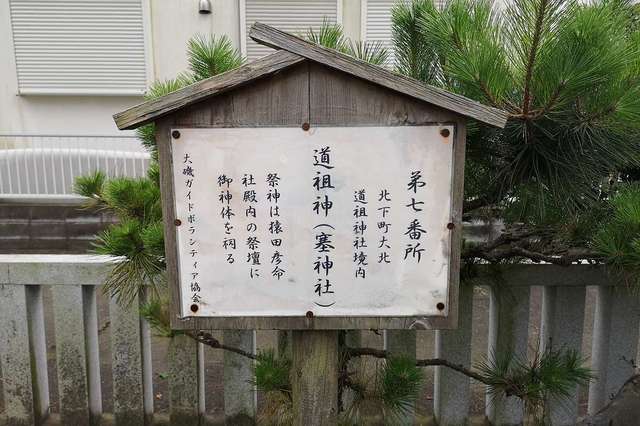 第七番所
北下町大北
道祖神社境内
道祖神（塞神社）
祭神は猿田彦命
社殿内の祭壇に
御神体を祠る
大磯ガイドボランティア協会